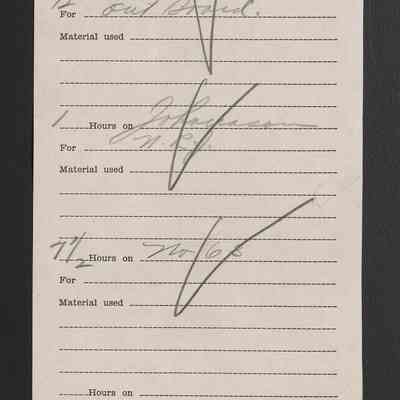 For out Board.
Material used
1 Hours on
For
Material used
7 1/2 Hours on No 68
For
Material used
Hours on